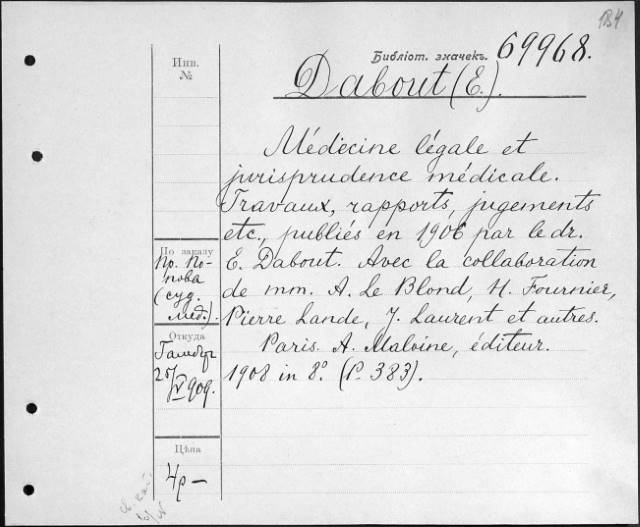 184
Библіот. значекъ. 69968.
Dabout (E.).
Инв.
№
Médécine légale et
jurisprudence médicale.
Travaux, rapports, jugements
etc., publiés en 1906 par le dr.
E. Dabout. Avec la collaboration
de mm. A. Le Blond, H. Fournier,
Pierre Lande, J. Laurent et autres.
Paris. A. Maloine, éditeur.
1908 in 8º. (P. 383).
По заказу
Пр. По-
пова
(суд.
мед.).
Откуда
25/V 909.
Цѣна
4р —